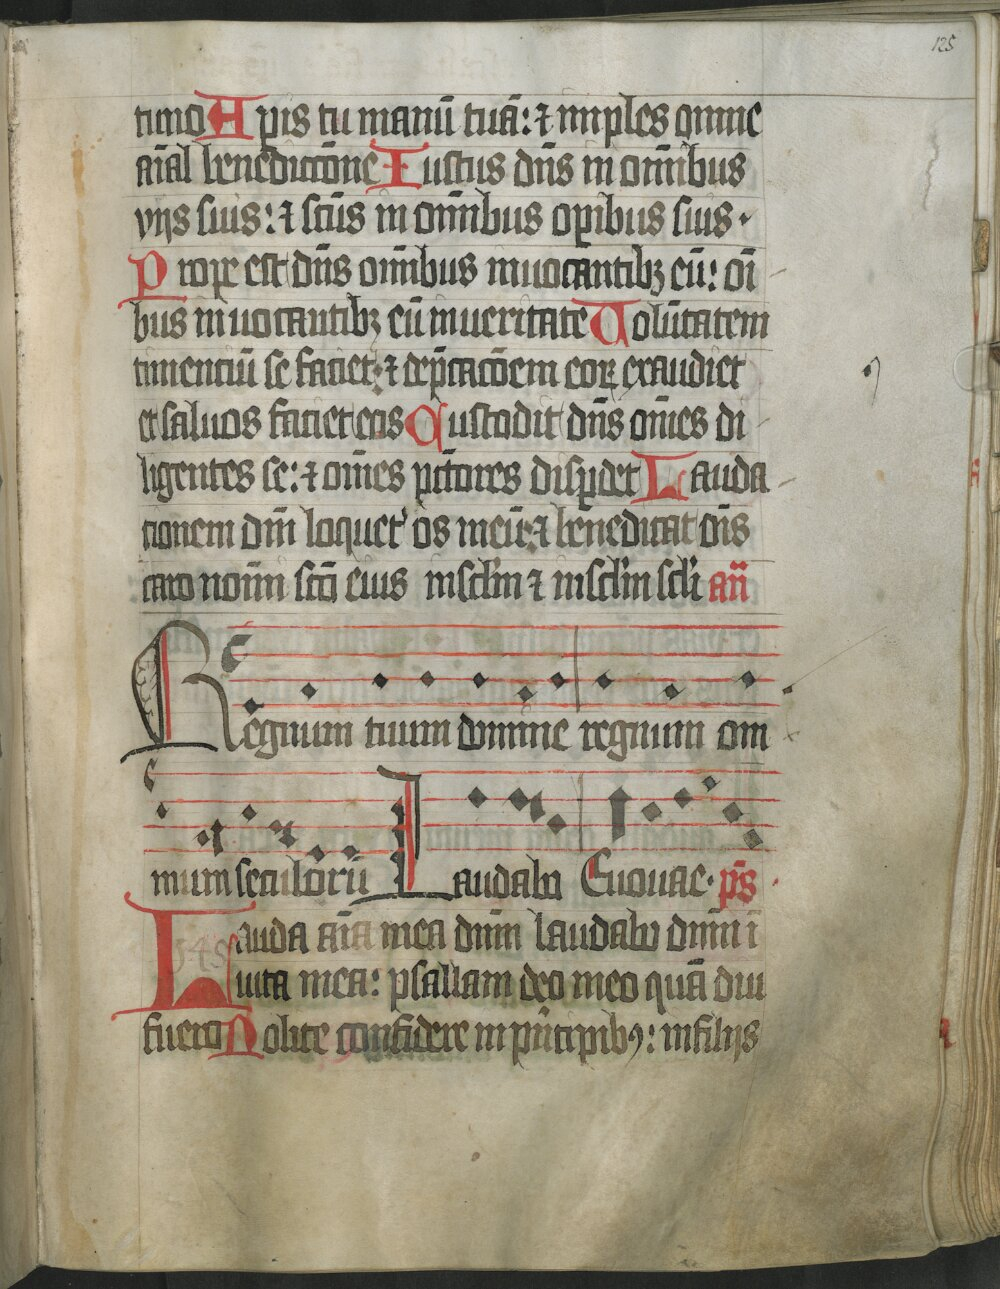 125
tuno Apis tu manū tuā: ⁊ imples omne
aīal benedictōne Iustus dn̄s in om̄ibus
vijs suis: ⁊ sc̄us in om̄ibus oꝑibus suis.
Prope est dn̄s om̄ibus inuocantibꝫ eū: oī
bus inuocantibꝫ eū in ueritate Uolūtatem
timenciū se faciet: ⁊ dep̄cacōem eoꝝ exaudiet
et saluos faciet eos Custodit dn̄s om̄es di
ligentes se: ⁊ om̄es pc̄tores disꝑdet Lauda
tionem dn̄i loquet' os meū: ⁊ benedicat om̄s
caro nomī scō eius in sc̄l'm ⁊ in sc̄l'm sc̄l'i an̄
Regnum tuum domine regnum om
nium seculorū Laudabo Euouae. p̄s
145
Lauda aīa mea dn̄m laudabo dn̄m ī
uita mea: psallam deo meo quā diu
fuero Nolite confidere in pn̄cipibꝰ: in filijs